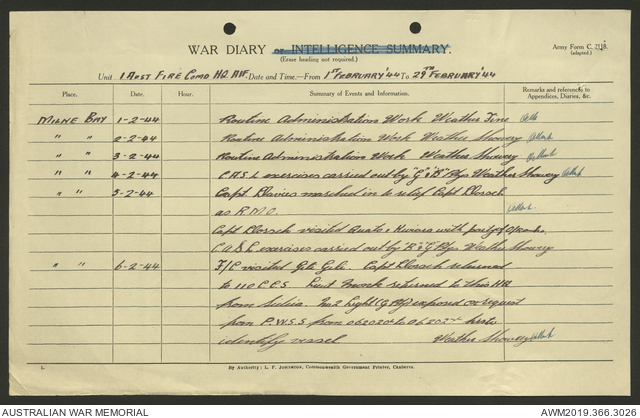 WAR DIARY or INTELLIGENCE SUMMARY.
(Erase heading not required.)
Army Form C. 2118.
(adapted.)
Unit 1 Aust Fire Comd HQ AIF. Date and Time.—From 1st February '44 To 29th February '44
Place. Date. Hour. Summary of Events and Information. Remarks and references to Appendices, Diaries, &c.
Milne Bay 1-2-44 Routine Administration Work Weather Fine
" " 2-2-44 Routine Administration Work Weather Showery
" " 3-2-44 Routine Administration Work Weather Showery
" " 4-2-44 C.A.S.L exercises carried out by "G" & "B" Btys Weather Showery
" " 5-2-44 Capt Davies marched in to relief Capt
as R.M.O.
Capt visited & with party of
C.A.S.L exercises carried out by "B" & "G" Btys Weather Showery
" " 6-2-44 F/C visited Gili Gili. Capt returned
to 110 C.C.S. Lieut returned to this HQ
from No 2 Light (G Bty) exposed on request
from P.W.S.S from 062020k to 062024 hrs to
identify vessel Weather Showery
L.
By Authority: L. F. Johnston, Commonwealth Government Printer, Canberra.
AUSTRALIAN WAR MEMORIAL
AWM2019.366.3026